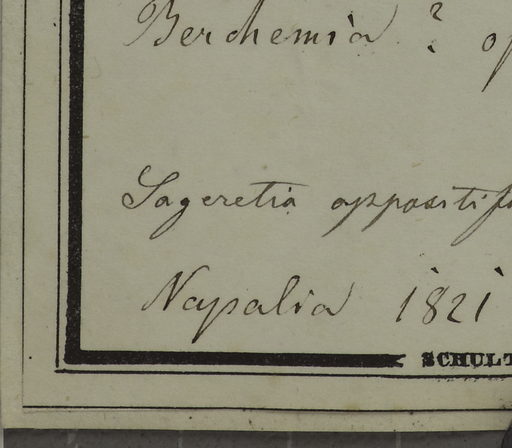 Berchemia ? op
Sageretia oppositifo
Napalia 1821
SCHULT